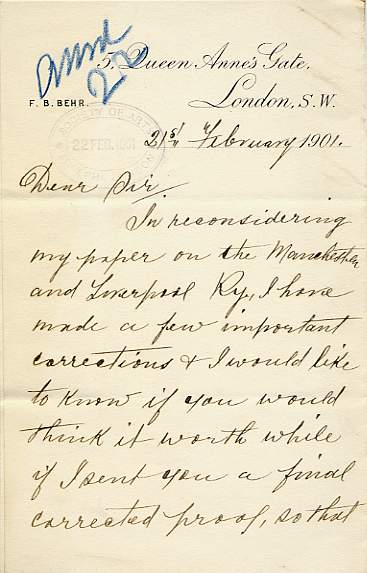 5, Queen Anne's Gate,
London, S.W.
F. B. BEHR.
SOCIETY OF ARTS
22 FEB. 1901
21st February 1901.
Dear Sir,
In reconsidering
my paper on the Manchester
and Liverpool Ry., I have
made a few important
corrections & I would like
to know if you would
think it worth while
if I sent you a final
corrected proof, so that